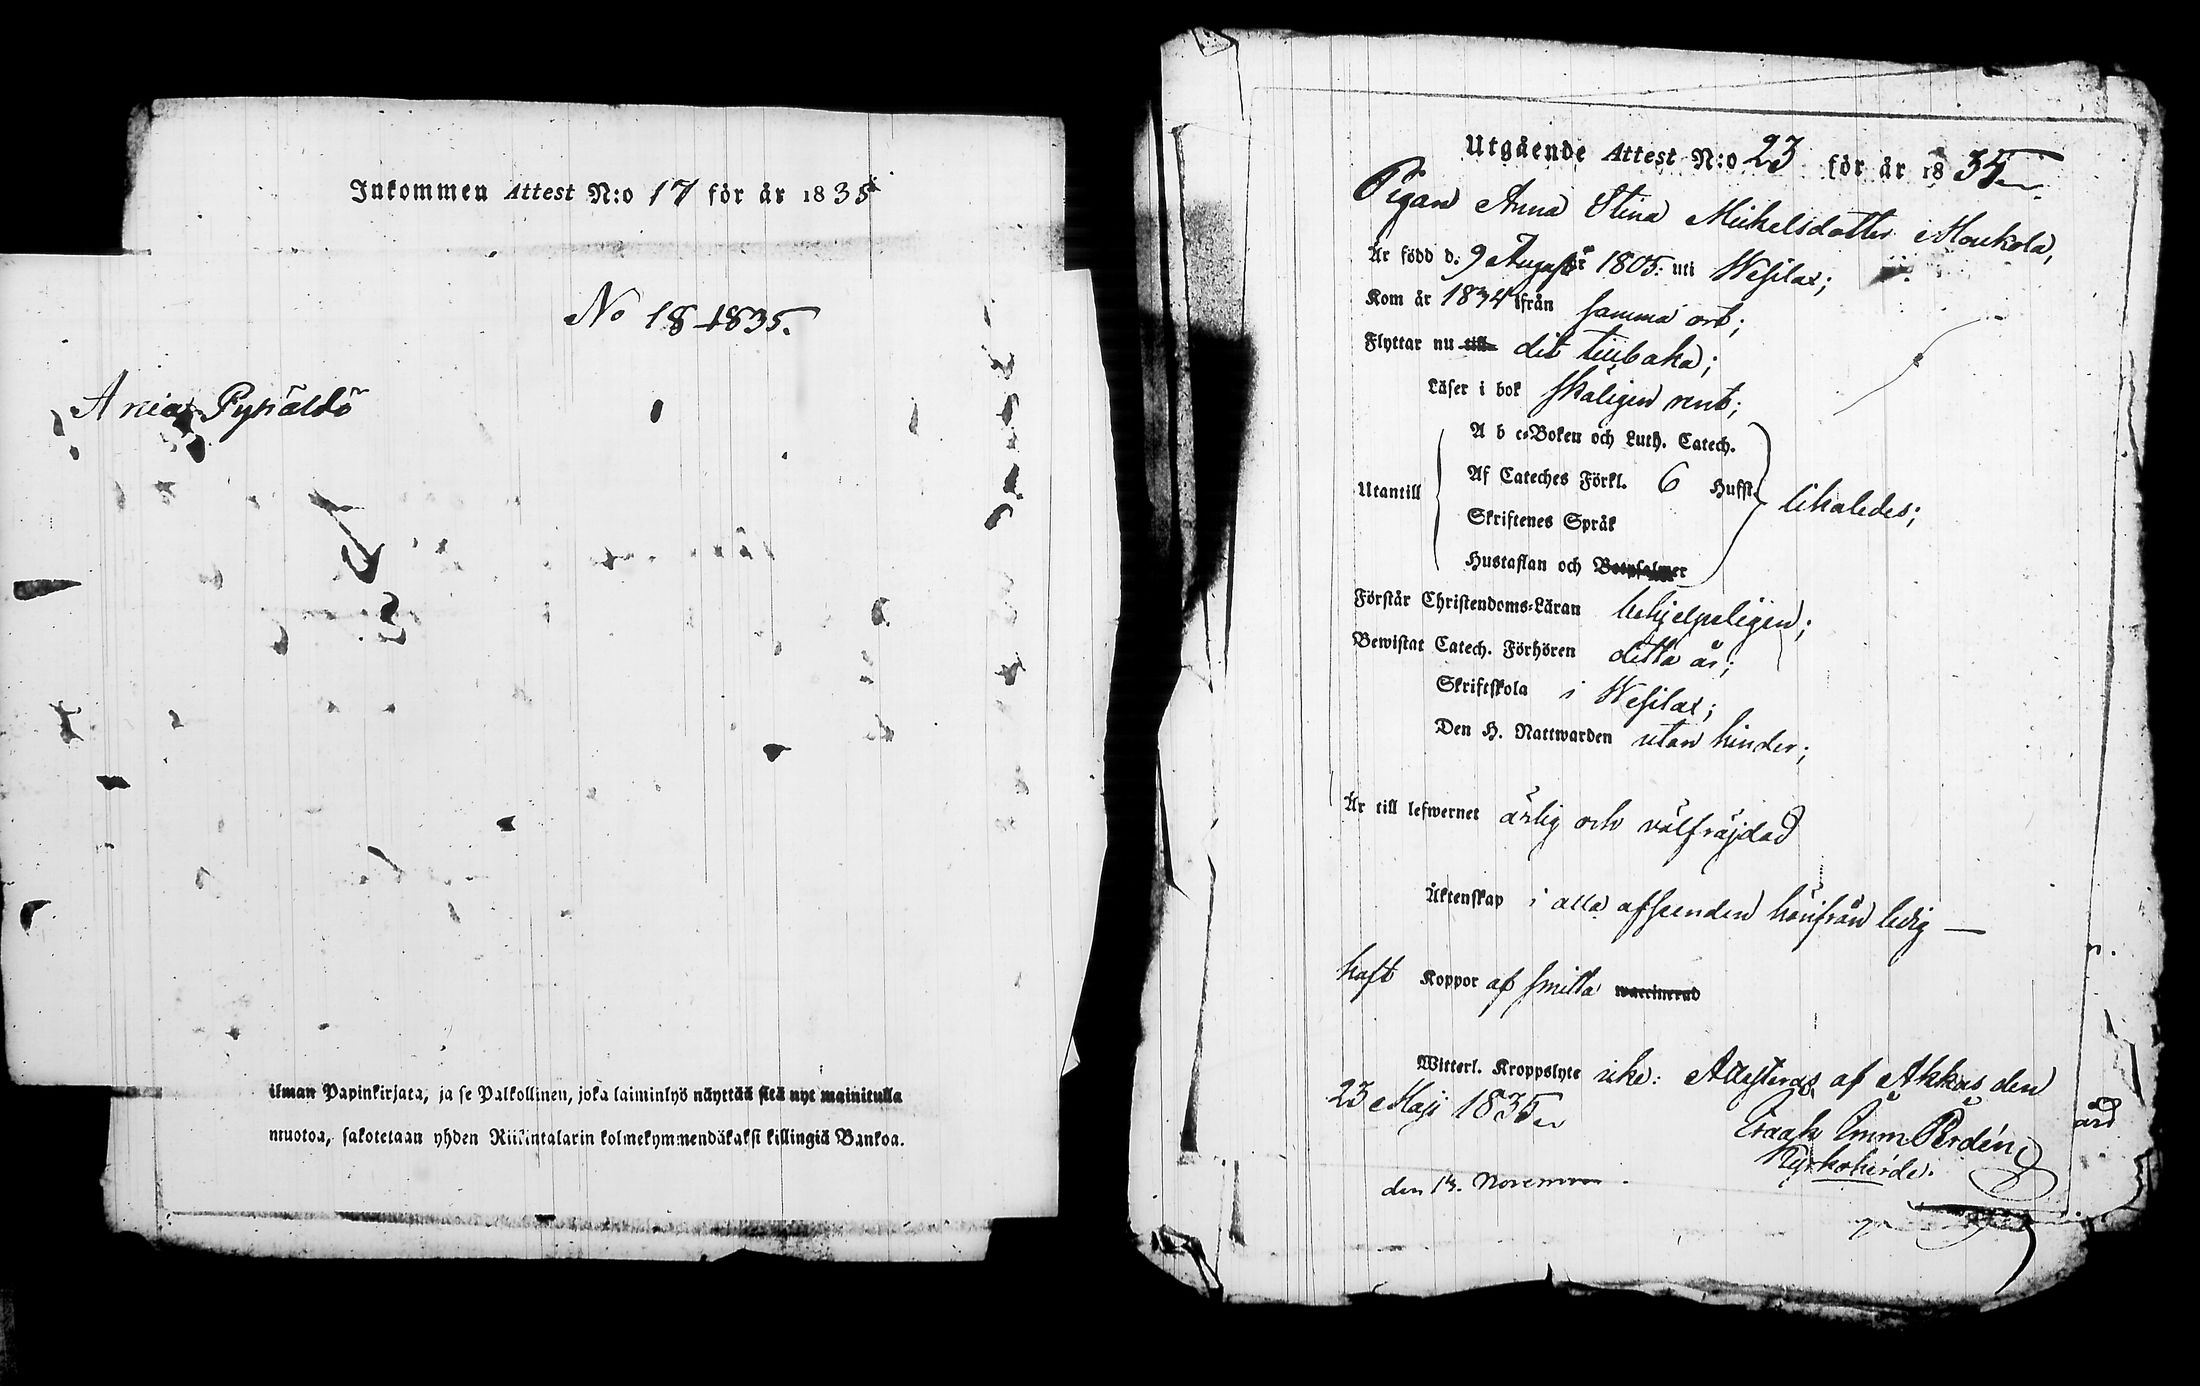 Inkommen Attest N:o 17 för år 1835
No 18 1835.
Pyhäldö
ilman Papinkirjata, ja se Palkollinen, joka laiminlyö näyttää sitä nyt mainitulla
muotoa, sakotetaan yhden Riikintalarin kolmekymmendäkaksi killingiä Bankoa.
Utgående Attest N:o 23 för år 1835
Pigan Anna Stina Michelsdotter Moukola,
Är född d. 9 Augusti 1805: uti Wesilax;
Kom år 1834 ifrån samma ort;
Flyttar nu till dit tillbaka;
Läser i bok skäligen rent;
A b c-Boken och Luth. Catech.
Af Cateches Förkl. 6 Hufst.
Utantill likaledes;
Skriftenes Språk
Hustaflan och Botpsalmer
Förstår Christendoms-Läran behjelpeligen;
Bewistat Catech. Förhören detta år;
Skriftskola i Wesilax;
Den H. Nattwarden utan hinder;
Är till lefwernet ärlig och välfräjdad
Äktenskap i alla afseenden härifrån ledig —
haft Koppor af smitta waccinerad
Witterl. Kroppslyte icke: Attesteras af Akkas den
23 Maji 1835
Isaak Emm Perdén
Kyrkoherde.
den 13. November